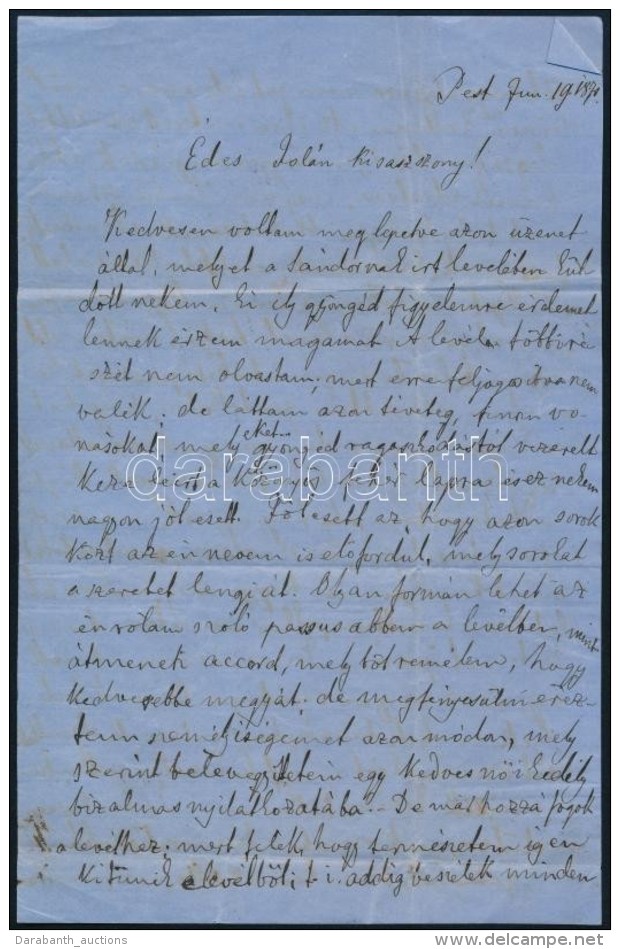 Pest Jun. 19 187
Édes Jolán kisaszszony!
Kedvesen voltam meglepetve azon üzenet
által, melyet a Sándornak irt levelében kül-
dött nekem. Ki ily gyöngéd figyelemre érdemet
lennek érzem magamat. A levél többi ré
szét nem olvastam, mert erre feljogositva nem
valék; de láttam azon finom vo-
násokat, melyeket gyöngéd ragaszkodástól vezérelt
keze leirt a fehér lapra és ez nekem
nagyon jól esett. Jól esett az, hogy azon sorok
közt az én nevem is előfordul, mely sorokat
a szeretet lengi át. Olyan formán lehet az
én rólam szóló passus abban a levélben, mint
átmeneti accord, melytől remélem, hogy
kedvesebbe megy át; de megtényesülni érez-
tem személyiségemet azon módon, mely
szerint belevegyitetém egy kedves női kedély
bizalmas nyilatkozatába. - De már hozzá fogok
a levélhez, mert félek, hogy természetem igen
kitünik a levélből; t. i. addig beszélek minden
darabanth
Darabanth_auctions
www.delcampe.net